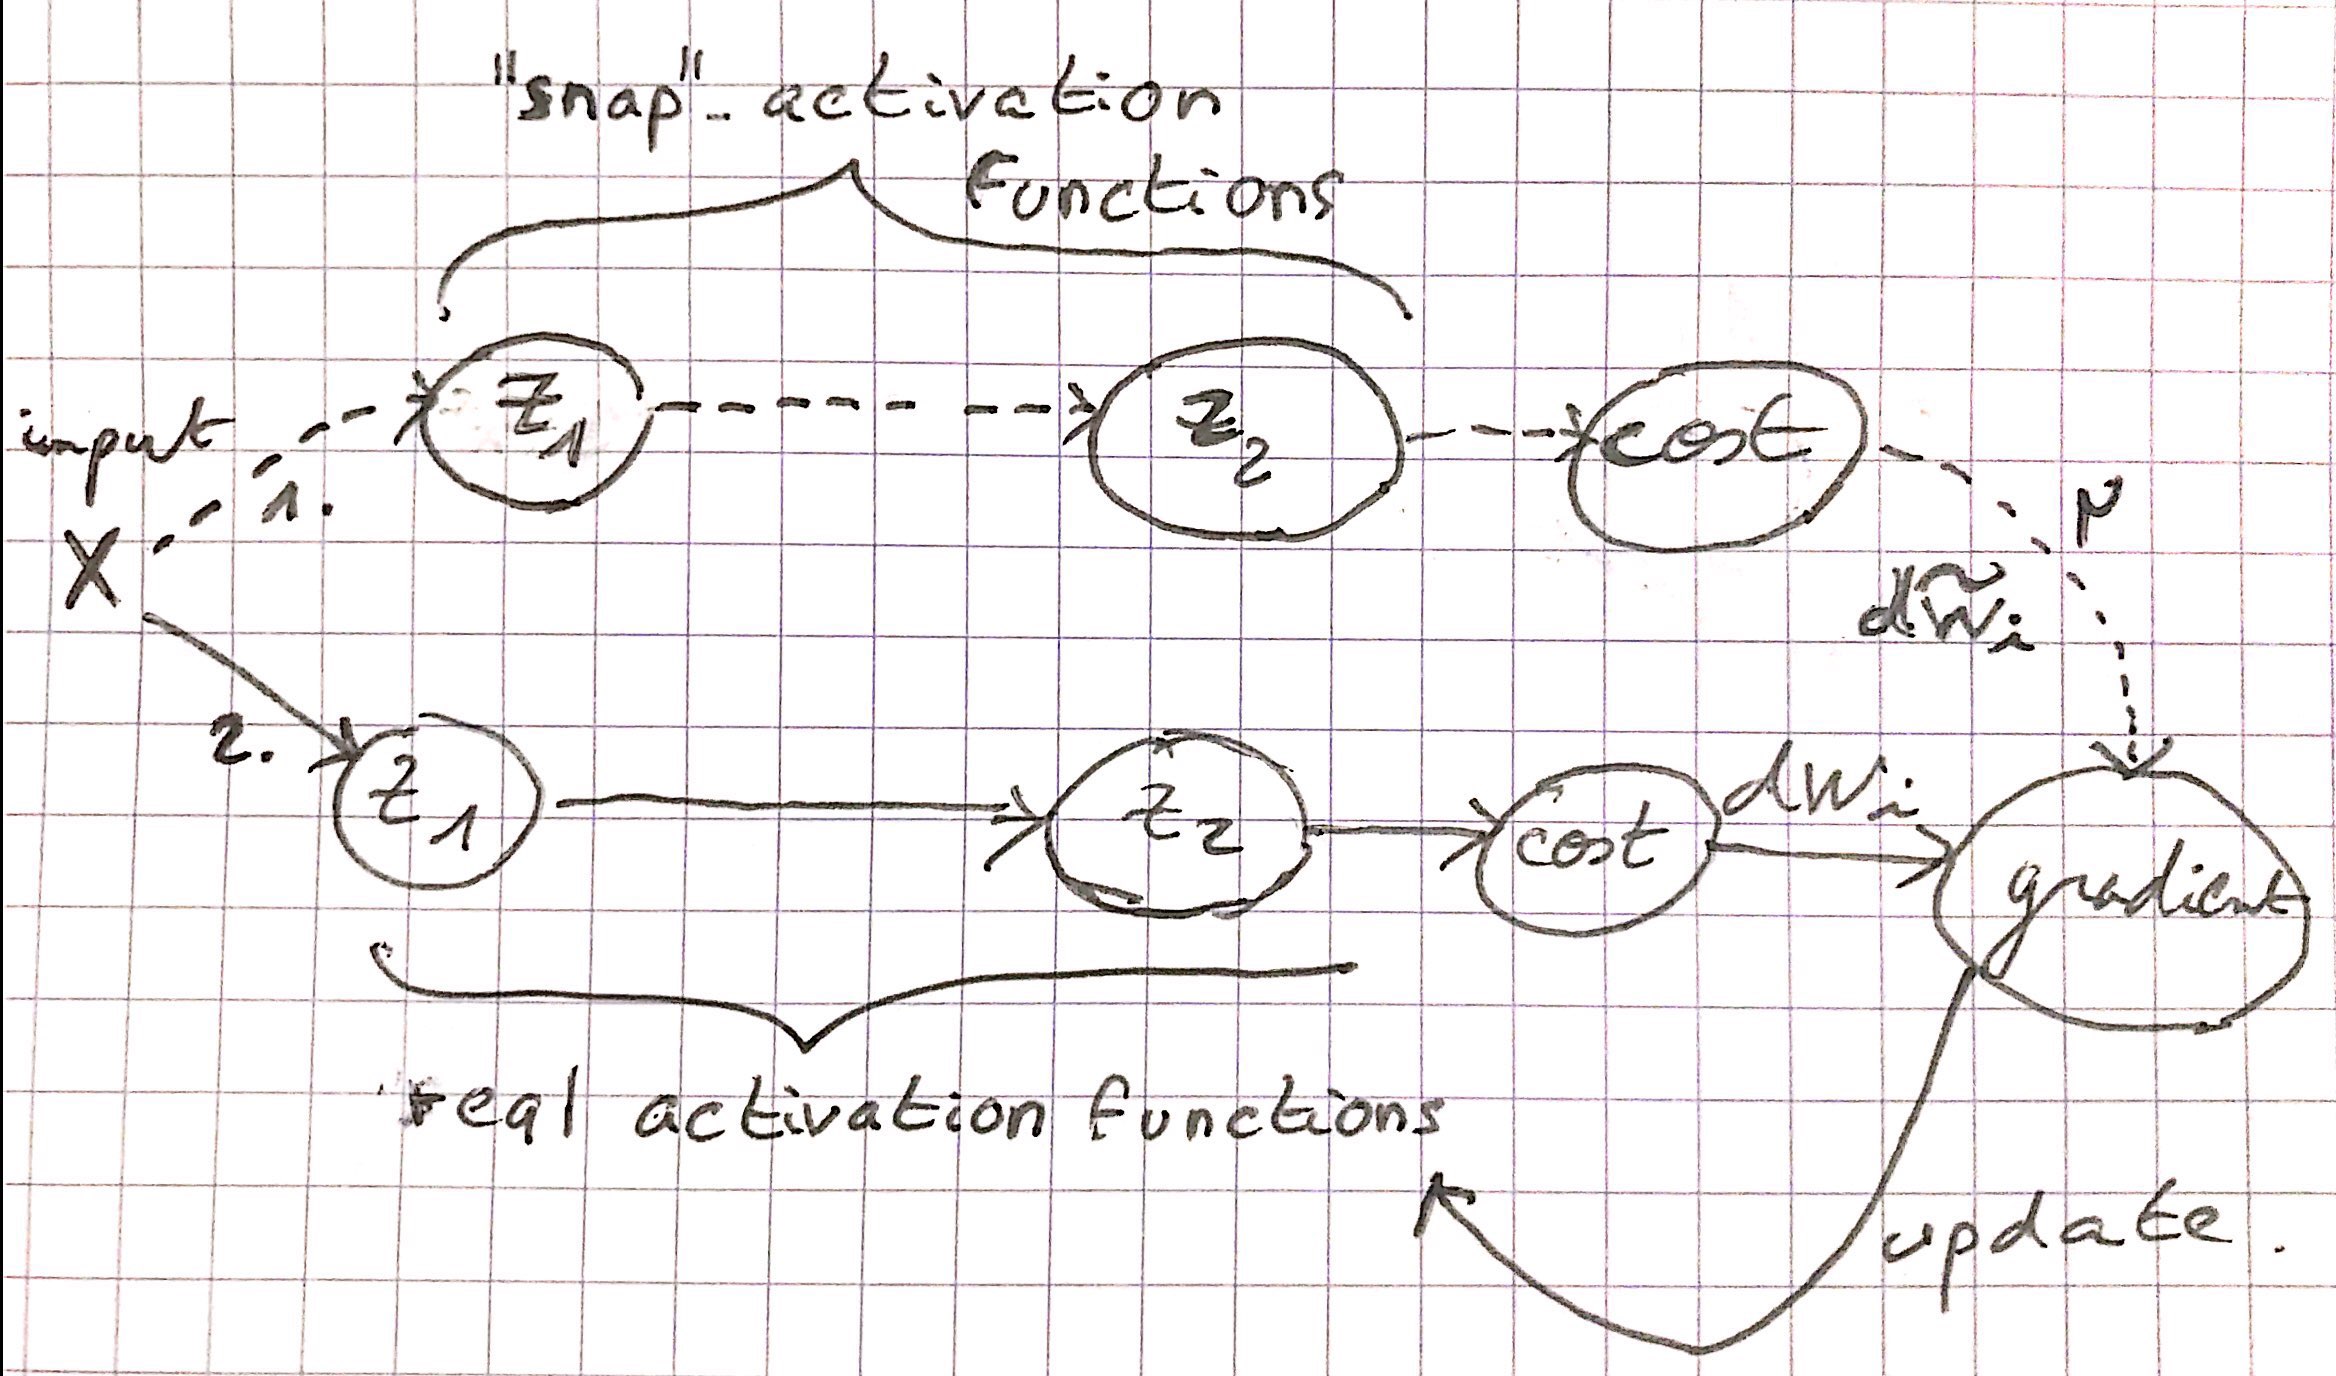 "snap"- activation
functions
input
1.
X
z1
z2
cost
dw̃i
2.
z1
z2
cost
dwi
gradient
real activation functions
update.